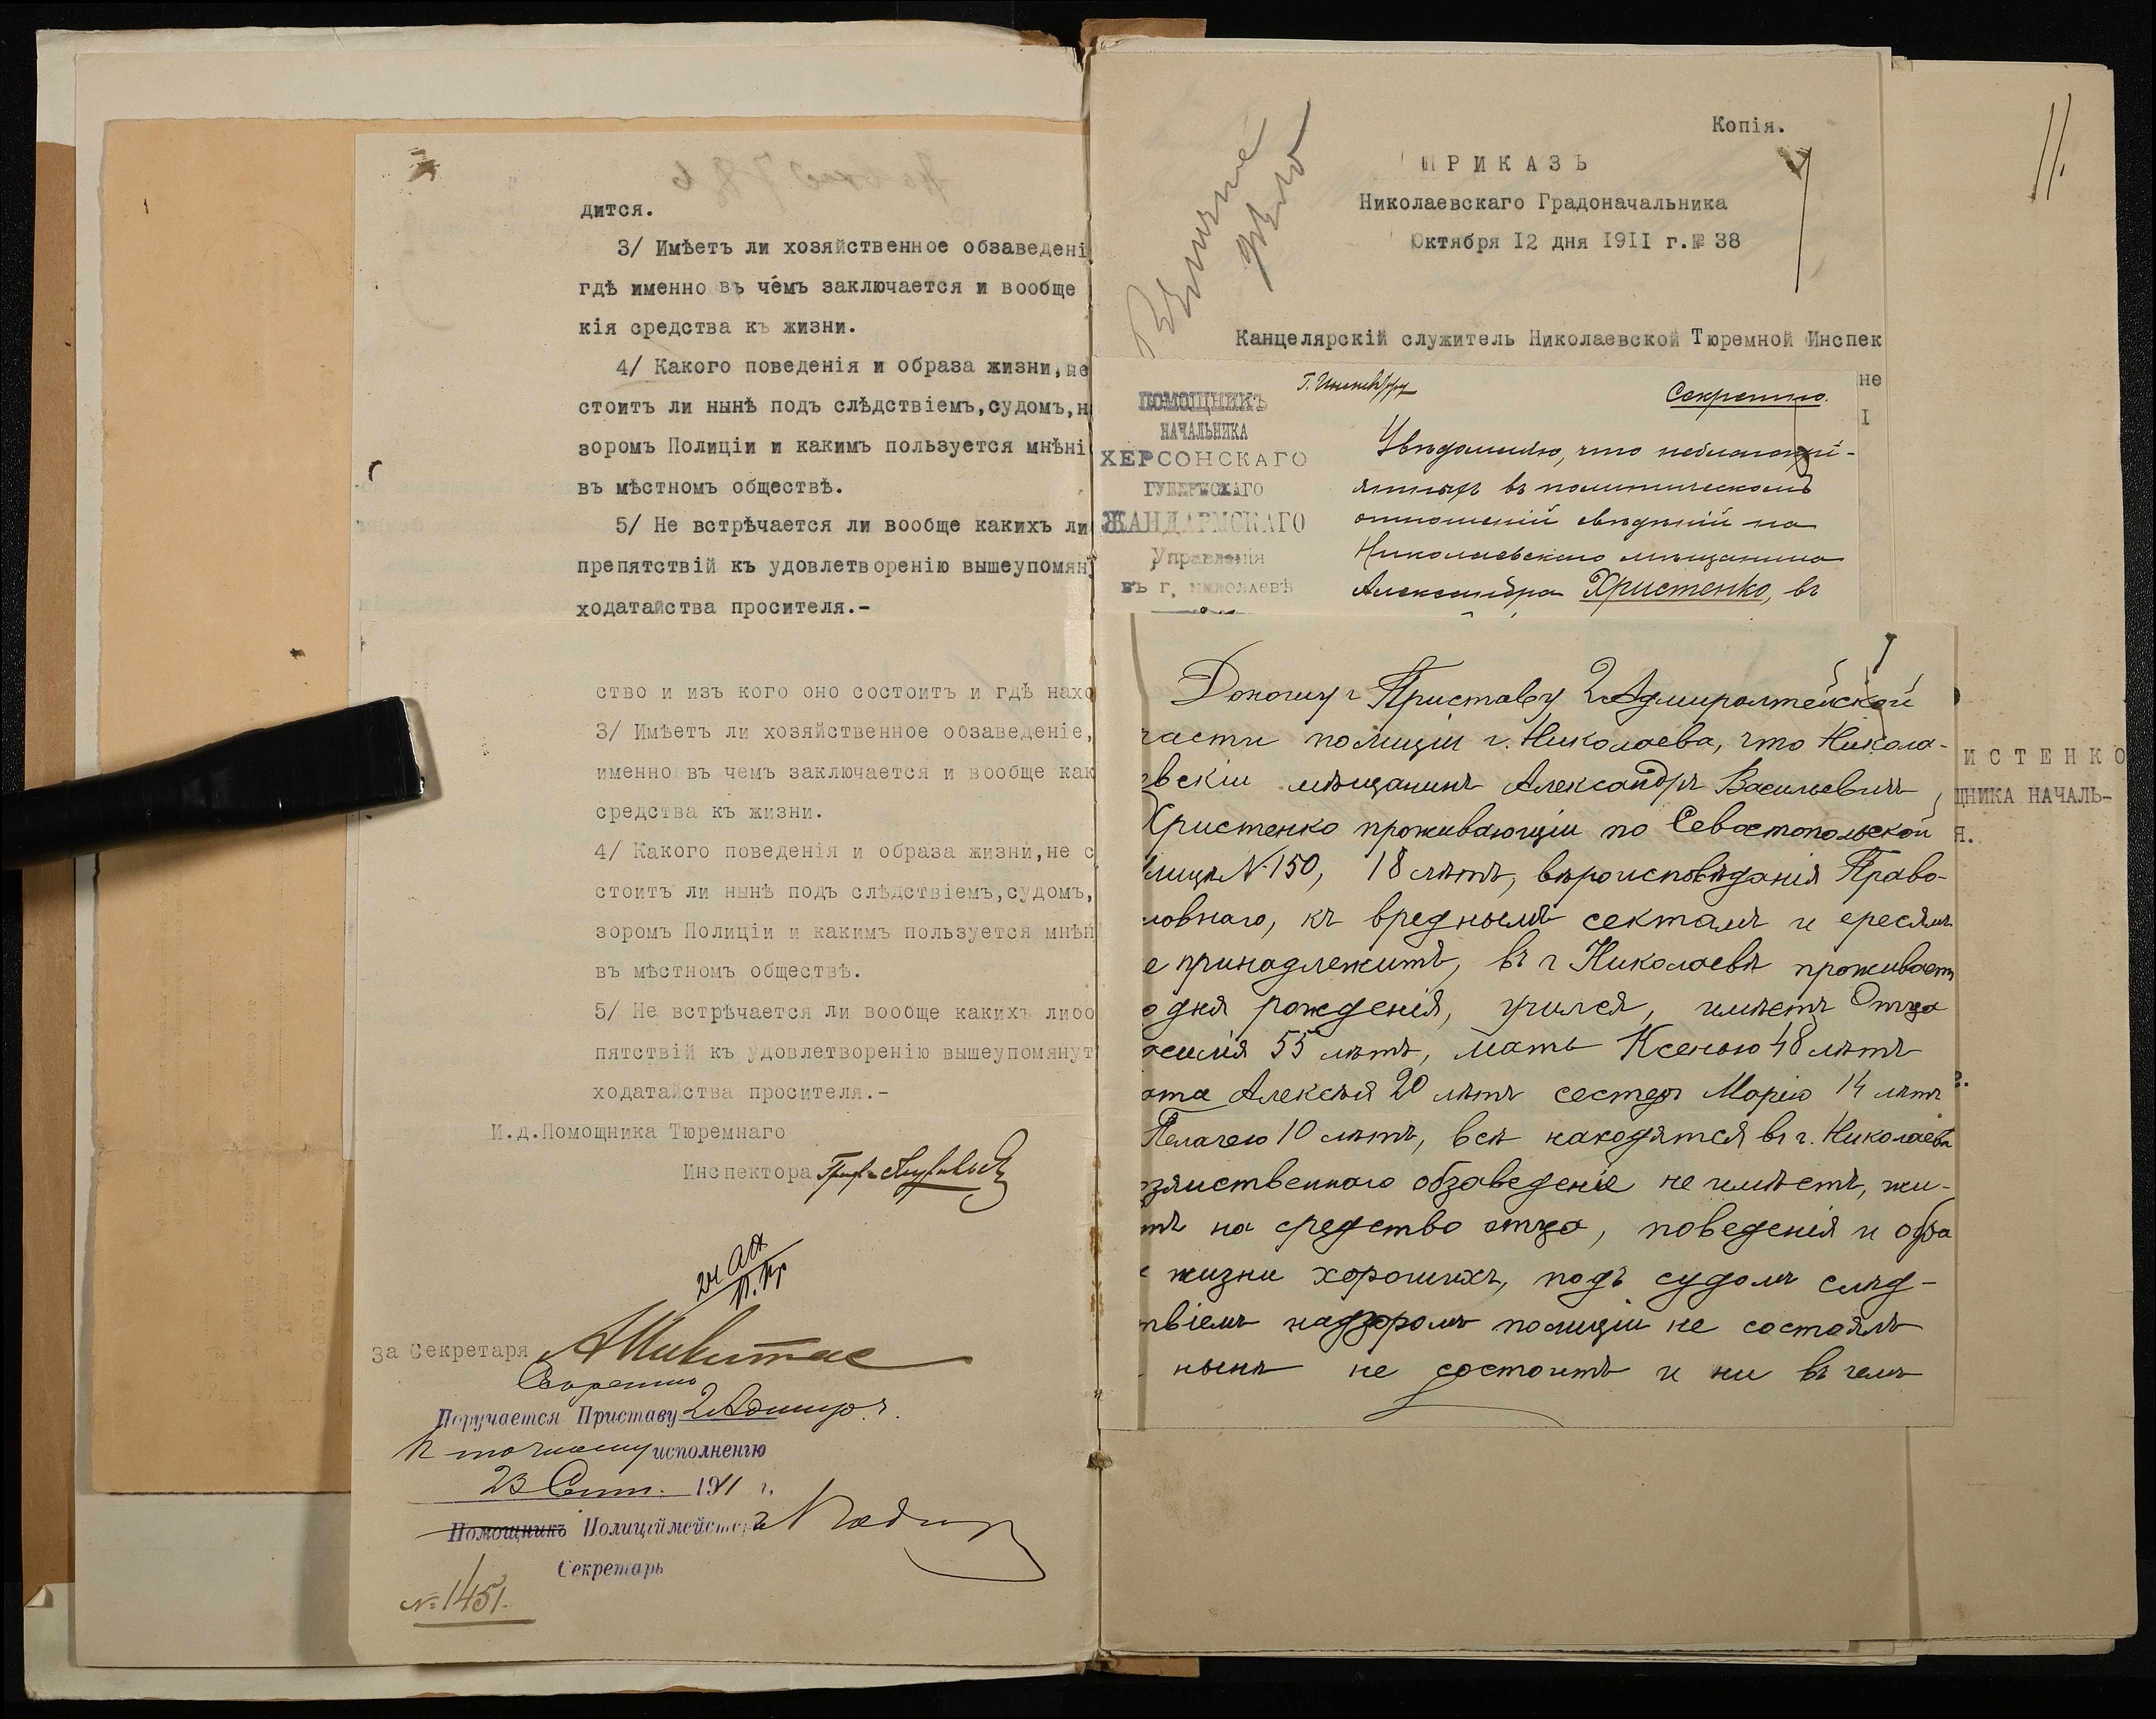 дится.
3/ Имѣетъ ли хозяйственное обзаведені
гдѣ именно въ чемъ заключается и вообще
кія средства къ жизни.
4/ Какого поведенія и образа жизни, не
стоитъ ли нынѣ подъ слѣдствіемъ, судомъ, н
зоромъ Полиціи и какимъ пользуется мнѣні
въ мѣстномъ обществѣ.
5/ Не встрѣчается ли вообще какихъ ли
препятствій къ удовлетворенію вышеупомян
ходатайства просителя.-
ство и изъ кого оно состоитъ и гдѣ нахо
3/ Имѣетъ ли хозяйственное обзаведеніе,
именно въ чемъ заключается и вообще как
средства къ жизни.
4/ Какого поведенія и образа жизни, не с
стоитъ ли нынѣ подъ слѣдствіемъ, судомъ,
зоромъ Полиціи и какимъ пользуется мнѣн
въ мѣстномъ обществѣ.
5/ Не встрѣчается ли вообще какихъ либо
пятствій къ удовлетворенію вышеупомянут
ходатайства просителя.-
И.д.Помощника Тюремнаго
Инспектора
за Секретаря
Секретно
Поручается Приставу 2 Адмир. ч.
к точному исполненію
23 Сент. 1911 г.
Помощникъ Полиціймейстера
Секретарь
№ 1451.
Копія.
ПРИКАЗЪ
Николаевскаго Градоначальника
Октября 12 дня 1911 г. № 38
дѣло
Канцелярскій служитель Николаевской Тюремной Инспек
не
I
11.
ПОМОЩНИКЪ
НАЧАЛЬНИКА
ХЕРСОНСКАГО
ГУБЕРНСКАГО
ЖАНДАРМСКАГО
Управленія
въ г. николаевѣ
Г. Инспектору
Секретно.
Увѣдомляю, что неблагопрі-
ятныхъ въ политическомъ
отношеніи свѣдѣній на
Николаевскаго мѣщанина
Александра Христенко, въ
Доношу г Приставу 2 Адмиралтейской
части полиціи г. Николаева, что Никола-
евскіи мѣщанинъ Александръ Васильевичъ
Христенко проживающіи по Севастопольской
лицѣ № 150, 18 лѣтъ, вѣроисповѣданія Право-
ловнаго, къ вреднымъ сектамъ и ересямъ
е принадлежитъ, въ г Николаевѣ проживаетъ
о дня рожденія, учился, имѣетъ Отца
асилія 55 лѣтъ, мать Ксенью 48 лѣтъ
ата Алексѣя 20 лѣтъ сестеръ Марію 14 лѣтъ
Пелагею 10 лѣтъ, всѣ находятся въ г. Николаевѣ
озяиственнаго обзаведеніе не имѣетъ, жи-
тъ на средство отца, поведенія и обра
жизни хорошихъ, подъ судомъ слѣд-
твіемъ надзоромъ полиціи не состоялъ
нынѣ не состоитъ и ни въ чемъ
ИСТЕНКО
ЩНИКА НАЧАЛЬ-
Я.